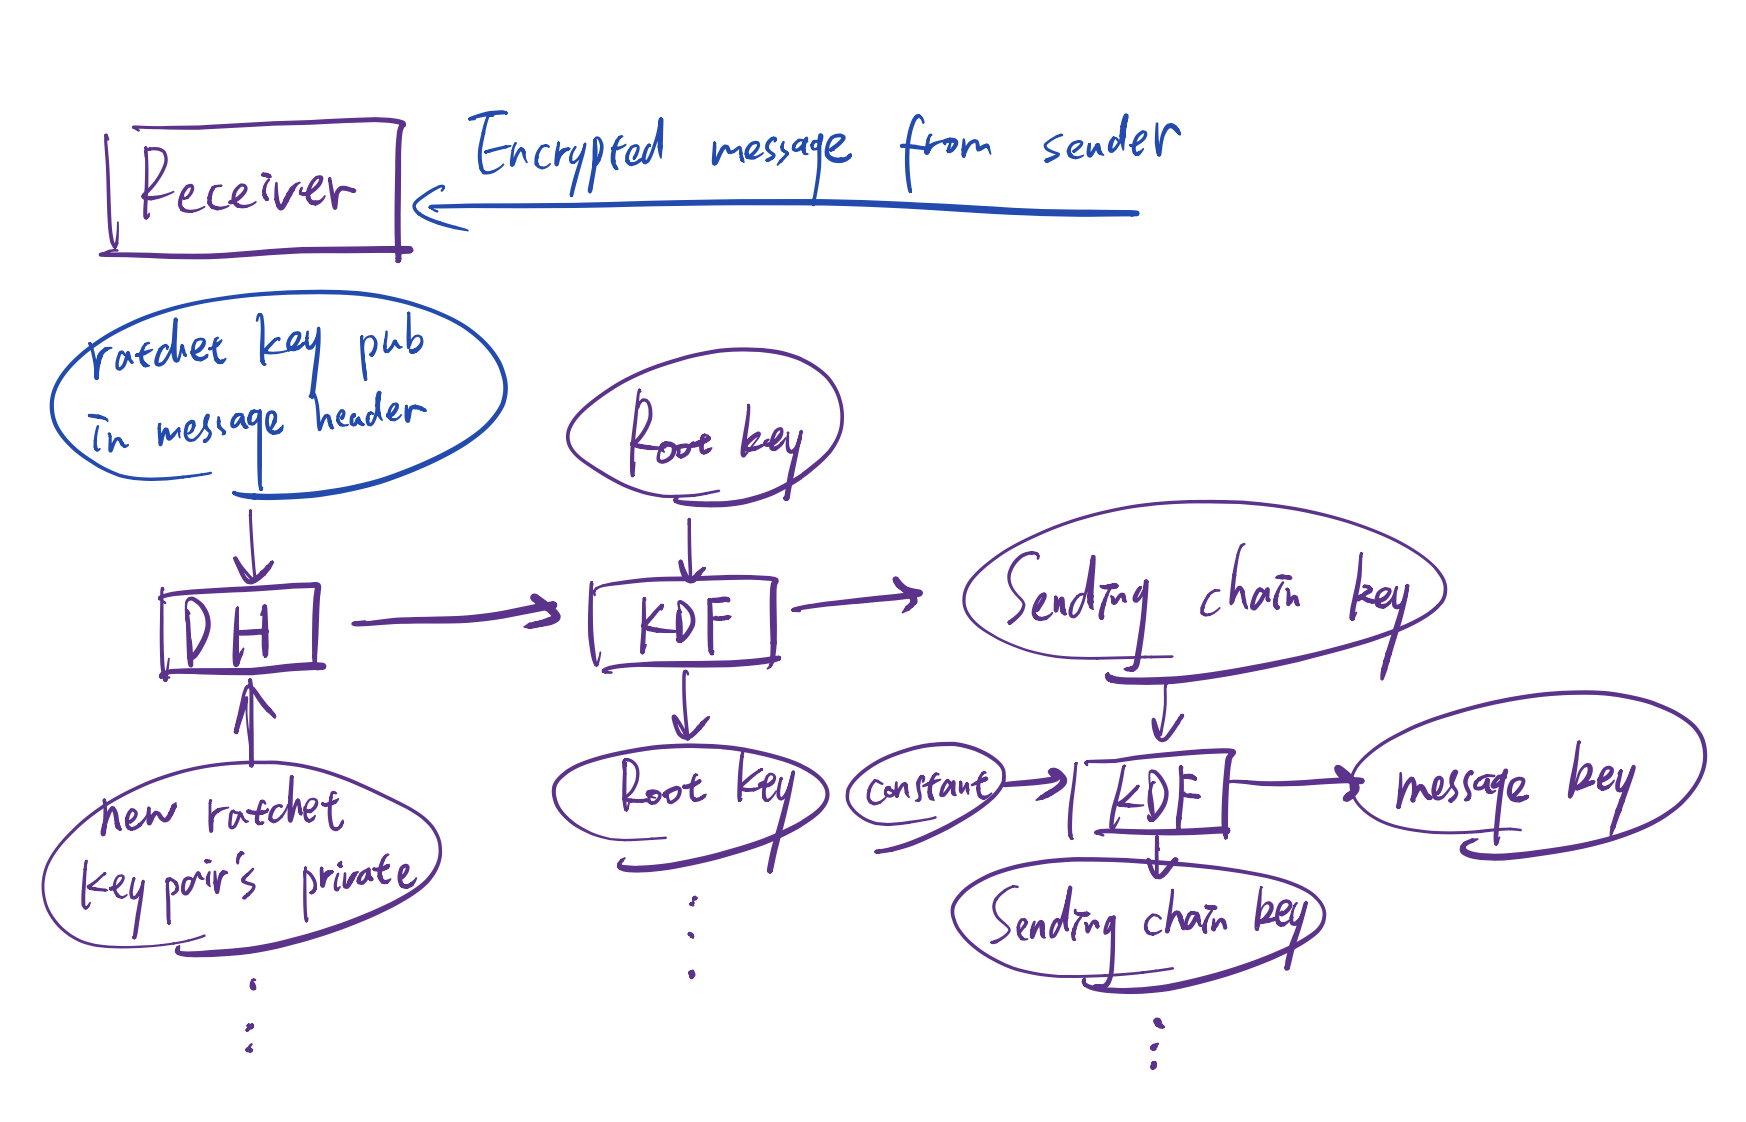 Receiver
Encrypted message from sender
ratchet key pub
in message header
Root key
DH
KDF
Sending chain key
new ratchet
key pair's private
Root key
constant
KDF
message key
Sending chain key